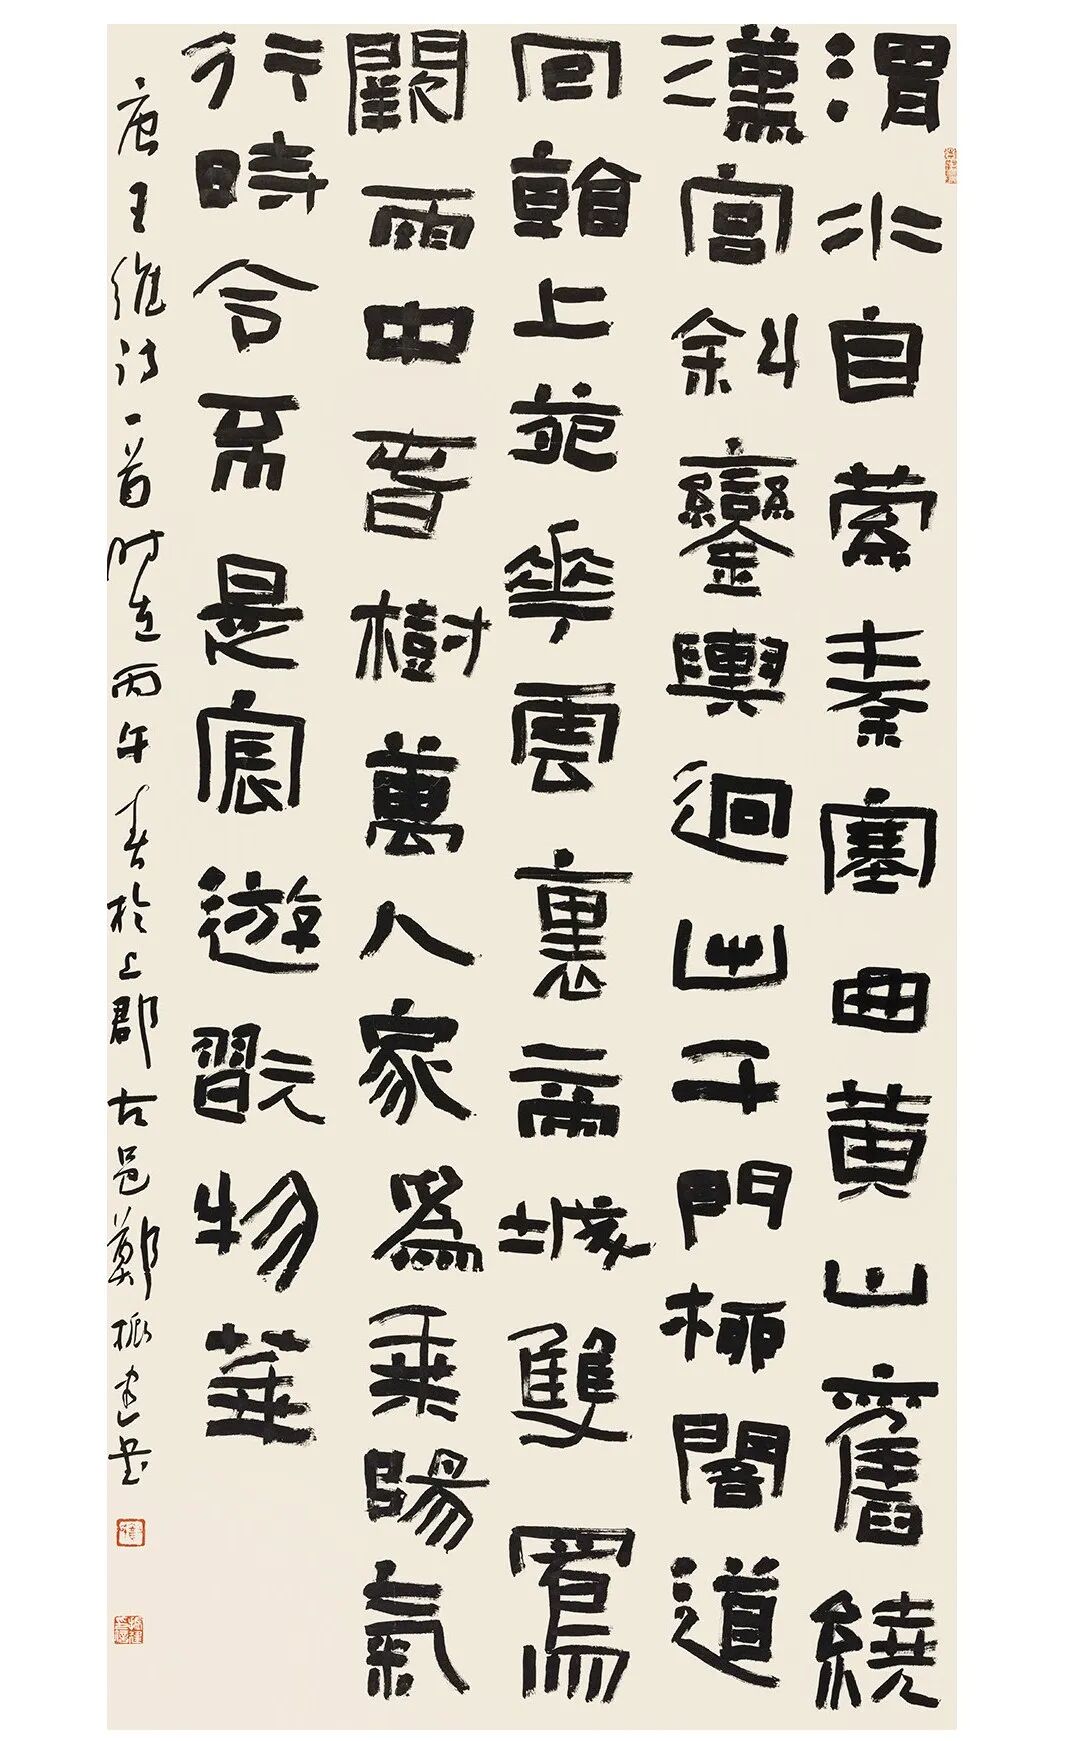 渭水自縈秦塞曲黃山舊繞
漢宮斜鑾輿迥出千門柳閣道
回看上苑花雲裏帝城雙鳳
闕雨中春樹萬人家爲乘陽氣
行時令不是宸遊翫物華
唐王維詩一首時在丙午春於上郡古邑鄭振書